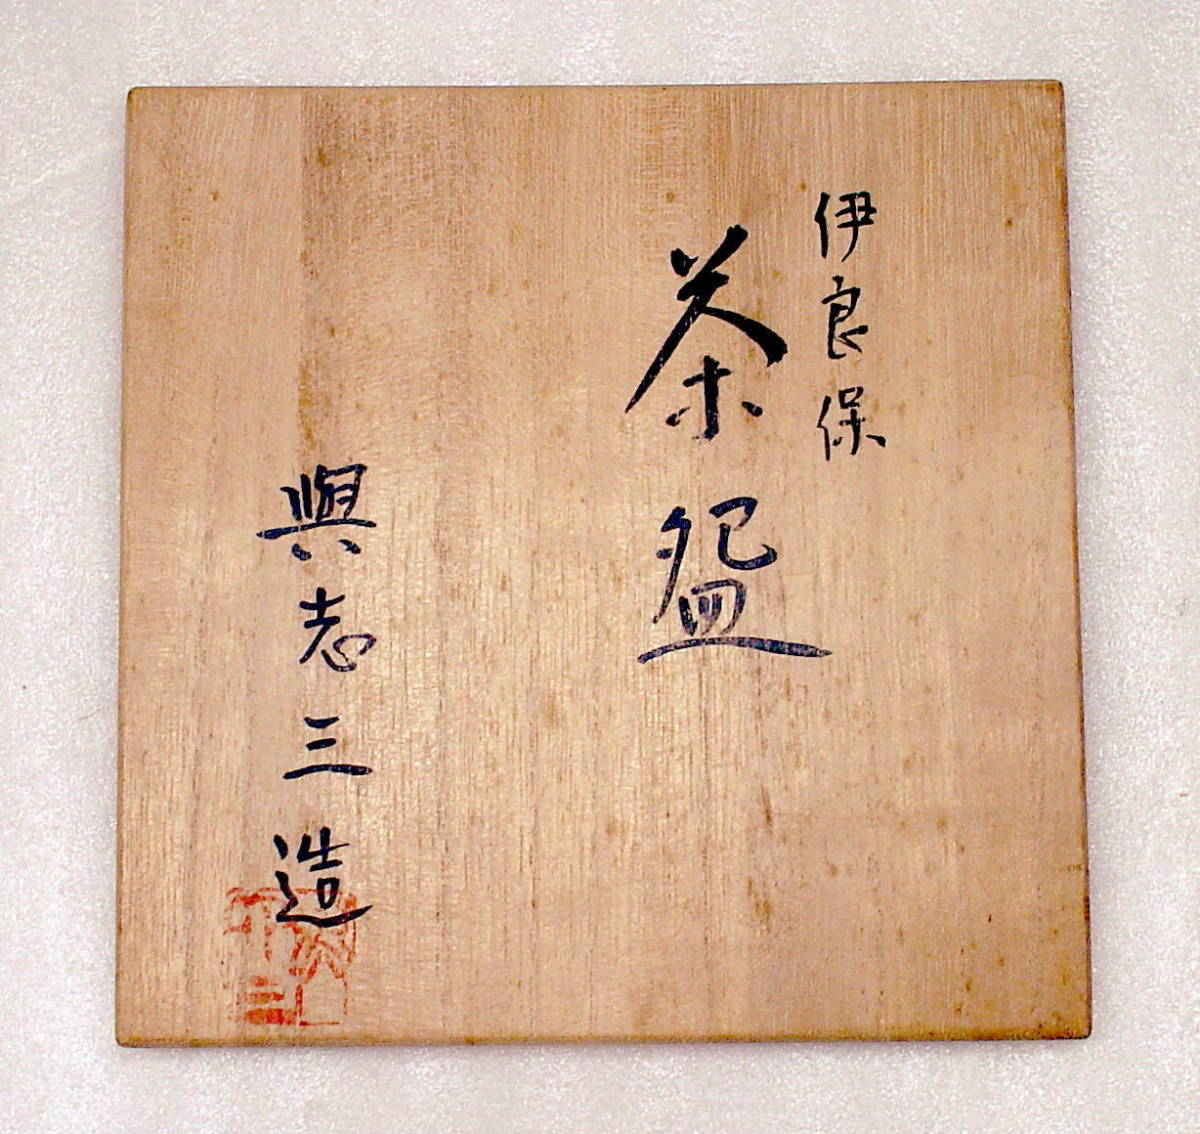 伊良保
茶盌
與志三造